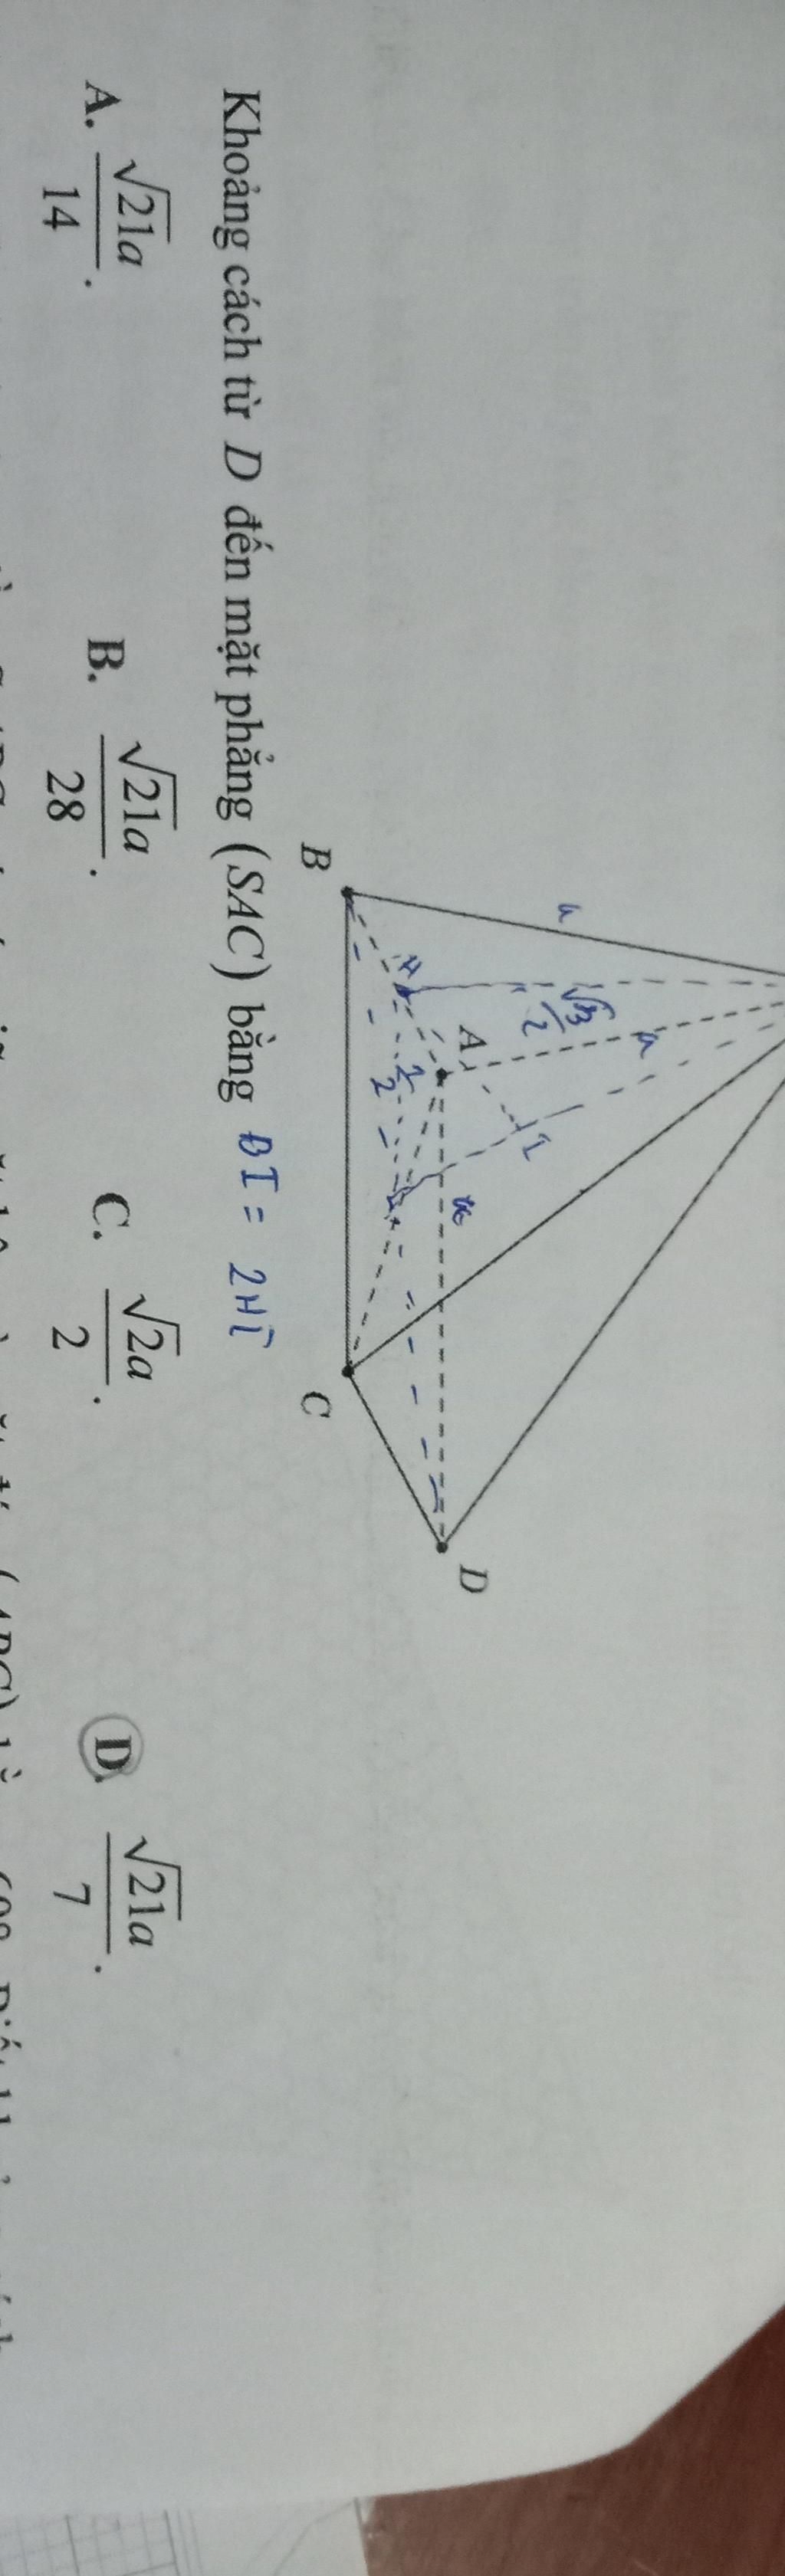 a
a
√3/2
H
A
I
a
B
C
D
Khoảng cách từ D đến mặt phẳng (SAC) bằng DI = 2HI
A. √21a/14. B. √21a/28. C. √2a/2. D. √21a/7.